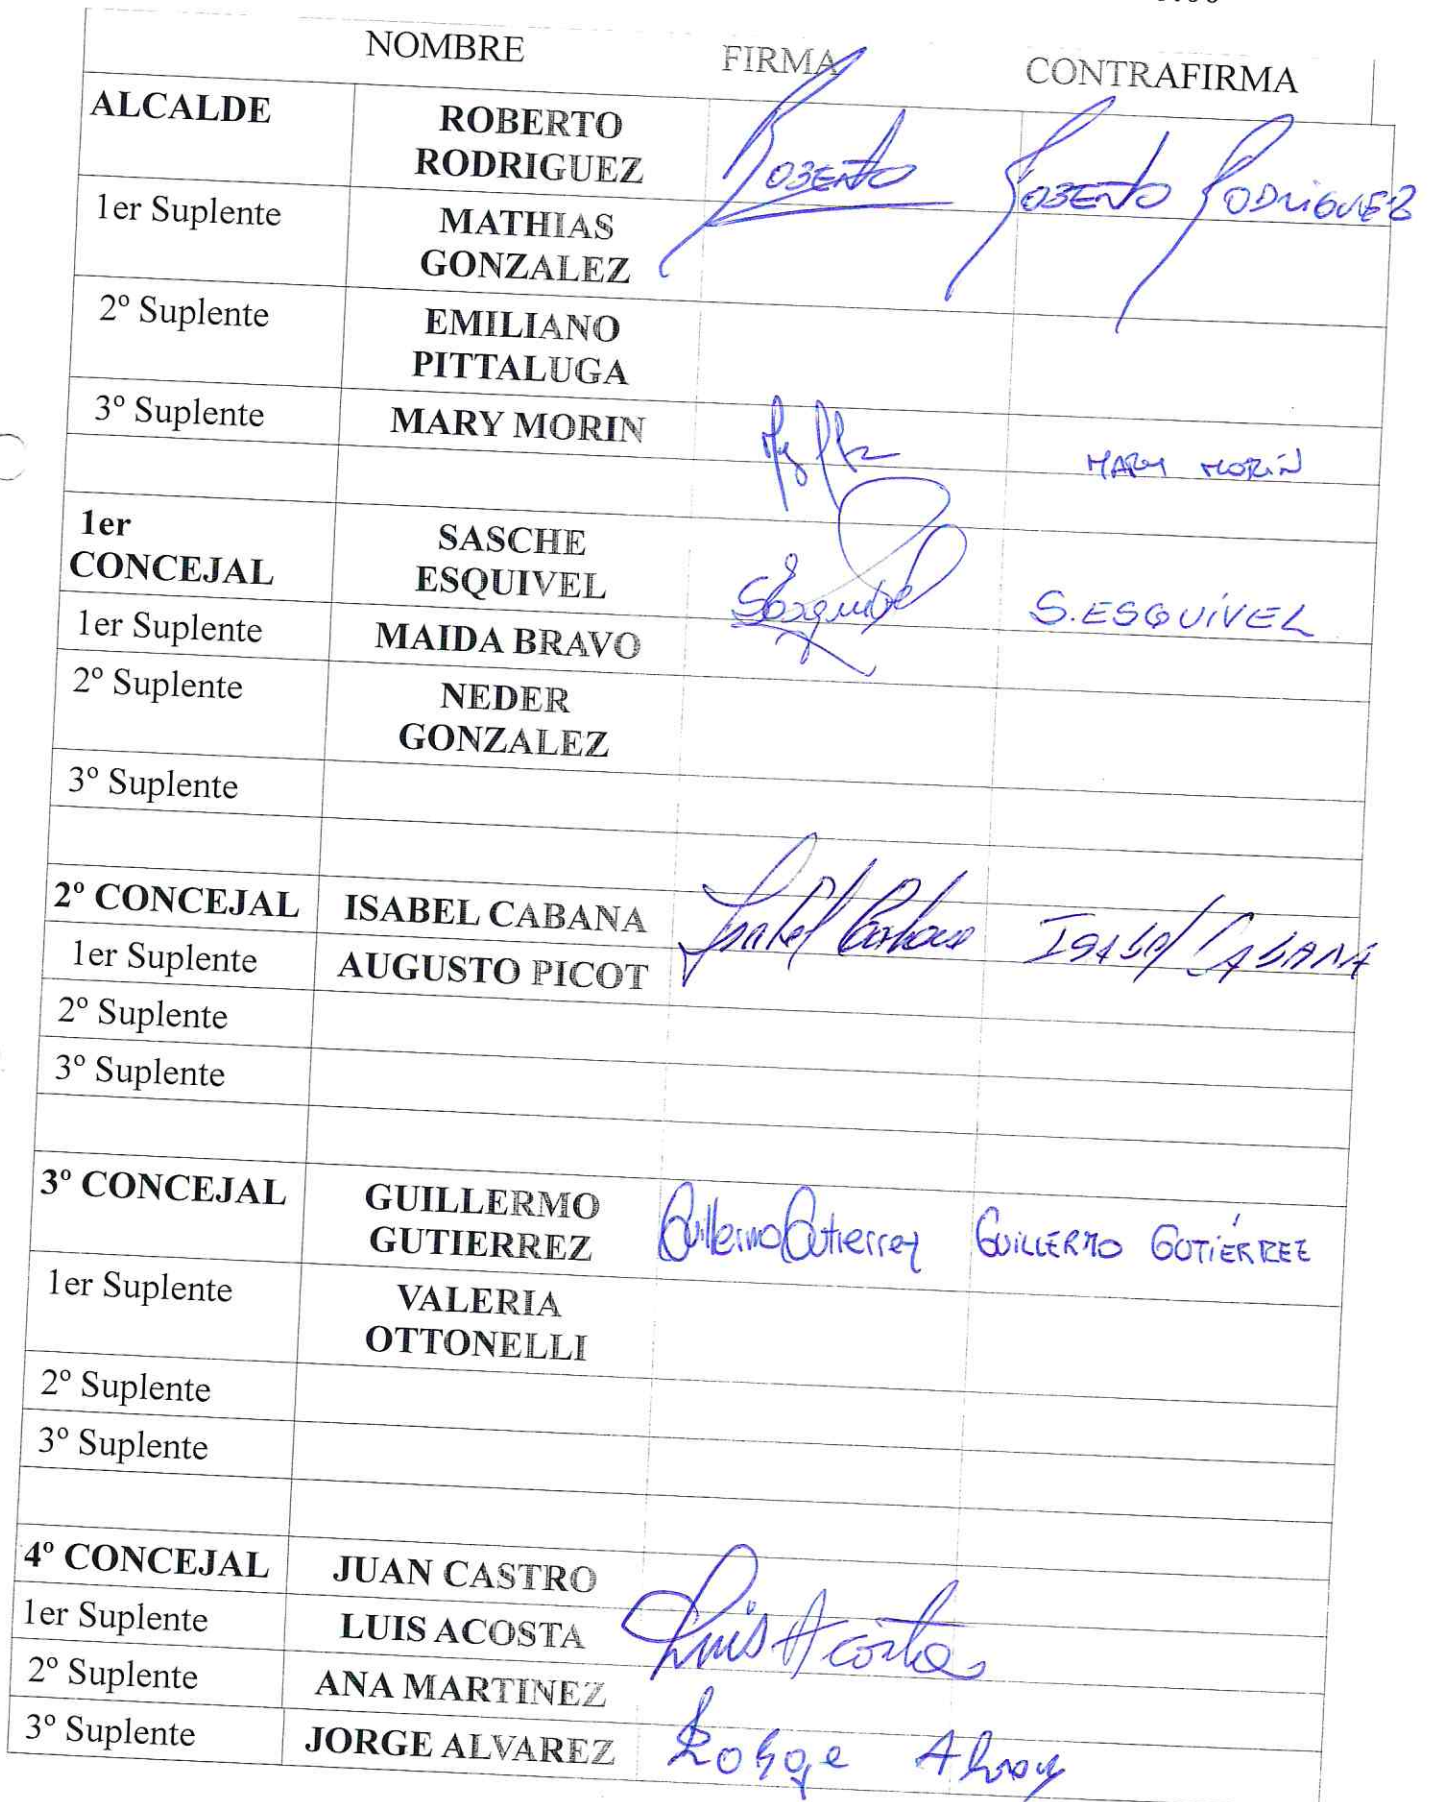 NOMBRE FIRMA CONTRAFIRMA
ALCALDE ROBERTO RODRIGUEZ Roberto Roberto Rodriguez
1er Suplente MATHIAS GONZALEZ
2º Suplente EMILIANO PITTALUGA
3º Suplente MARY MORIN MARY MORIN
1er CONCEJAL SASCHE ESQUIVEL SEsquivel S. ESQUIVEL
1er Suplente MAIDA BRAVO
2º Suplente NEDER GONZALEZ
3º Suplente
2º CONCEJAL ISABEL CABANA Isabel Cabana ISABEL CABANA
1er Suplente AUGUSTO PICOT
2º Suplente
3º Suplente
3º CONCEJAL GUILLERMO GUTIERREZ Guillermo Gutierrez GUILLERMO GUTIÉRREZ
1er Suplente VALERIA OTTONELLI
2º Suplente
3º Suplente
4º CONCEJAL JUAN CASTRO
1er Suplente LUIS ACOSTA Luis Acosta
2º Suplente ANA MARTINEZ
3º Suplente JORGE ALVAREZ